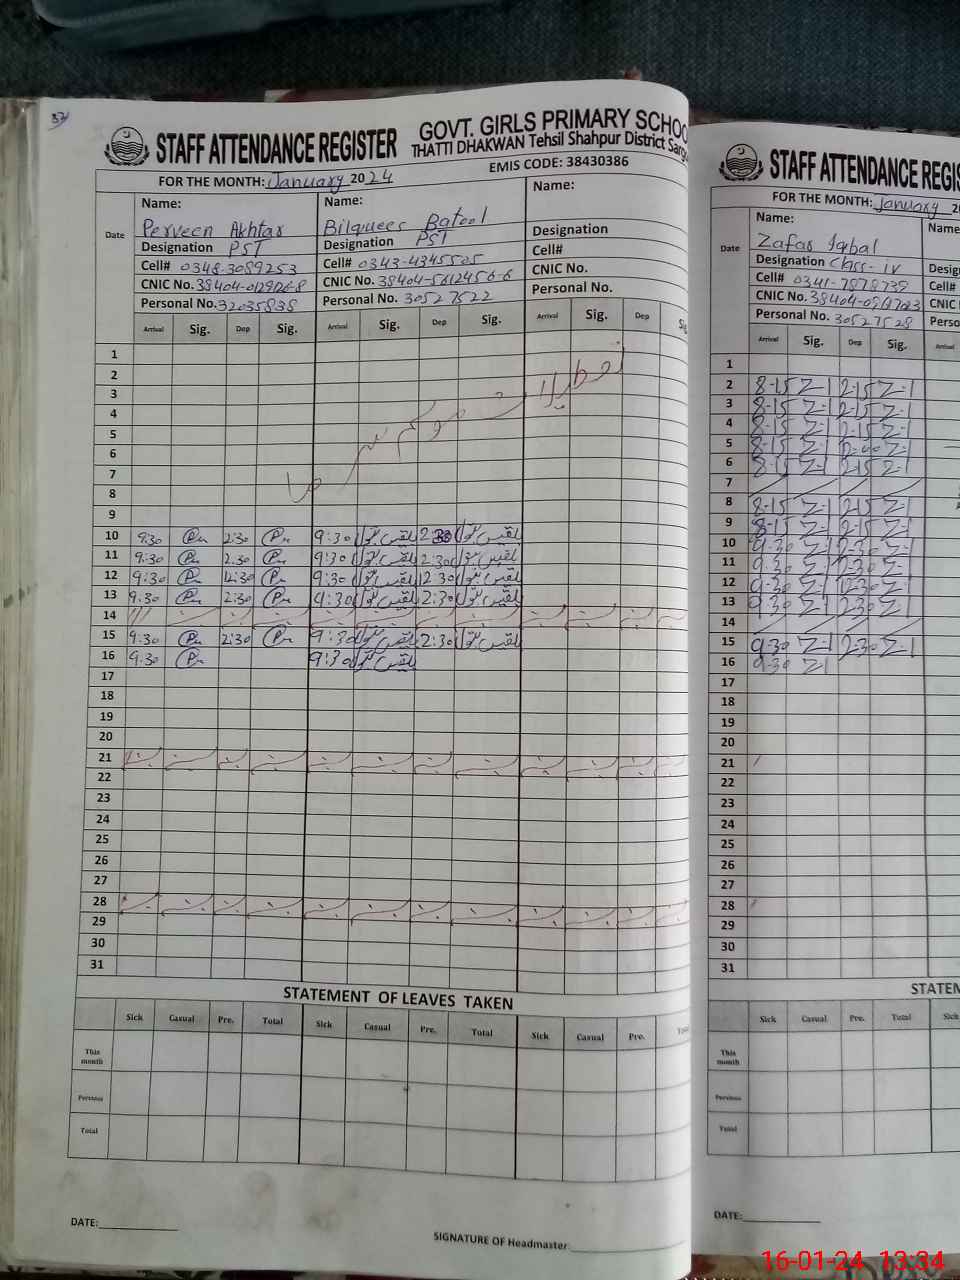 STAFF ATTENDANCE REGISTER
GOVT. GIRLS PRIMARY SCHOO
THATTI DHAKWAN Tehsil Shahpur District Sarg
EMIS CODE: 38430386
FOR THE MONTH: January 2024
Date
Name: Perveen Akhtar
Designation PST
Cell# 0348-3089253
CNIC No.
Personal No. 32035838
Name: Bilquees Batool
Designation PST
Cell# 0343-4345505
CNIC No. 38404-5612456-6
Personal No. 30527522
Name:
Designation
Cell#
CNIC No.
Personal No.
Arrival Sig. Dep Sig. Arrival Sig. Dep Sig. Arrival Sig. Dep Si
1
2
3
4
5
6
7
8
تعطیلات موسم سرما
9
10 9:30 Pu 2:30 Pu 9:30 بلقیس بتول 2:30 بلقیس بتول
11 9:30 Pu 2:30 Pu 9:30 بلقیس بتول 2:30 بلقیس بتول
12 9:30 Pu 12:30 Pu 9:30 بلقیس بتول 12:30 بلقیس بتول
13 9:30 Pu 2:30 Pu 9:30 بلقیس بتول 2:30 بلقیس بتول
14
15 9:30 Pu 2:30 Pu 9:30 بلقیس بتول 2:30 بلقیس بتول
16 9:30 Pu 9:30 بلقیس بتول
17
18
19
20
21
22
23
24
25
26
27
28
29
30
31
STATEMENT OF LEAVES TAKEN
Sick Casual Pre. Total Sick Casual Pre. Total Sick Casual Pre. Total
This month
Previous
Total
DATE:
SIGNATURE OF Headmaster:
STAFF ATTENDANCE REGIS
FOR THE MONTH: January 20
Date
Name: Zafar Iqbal
Designation Class-iv
Cell# 0341-7878739
CNIC No.
Personal No. 30527528
Name
Desig
Cell#
CNIC
Perso
Arrival Sig. Dep Sig. Arrival
1
2 8-15 Z-1 2-15 Z-1
3 8-15 Z-1 2-15 Z-1
4 8-15 Z-1 2-15 Z-1
5 8-15 Z-1 12-00 Z-1
6 8-15 Z-1 2-15 Z-1
7
8 8-15 Z-1 2-15 Z-1
9 8-15 Z-1 2-15 Z-1
10 9-30 Z-1 2-30 Z-1
11 9-30 Z-1 2-30 Z-1
12 9-30 Z-1 12-30 Z-1
13 9-30 Z-1 2-30 Z-1
14
15 9-30 Z-1 2-30 Z-1
16 9-30 Z-1
17
18
19
20
21
22
23
24
25
26
27
28
29
30
31
STATEM
Sick Casual Pre. Total Sick
This month
Previous
Total
DATE:
16-01-24 13:34